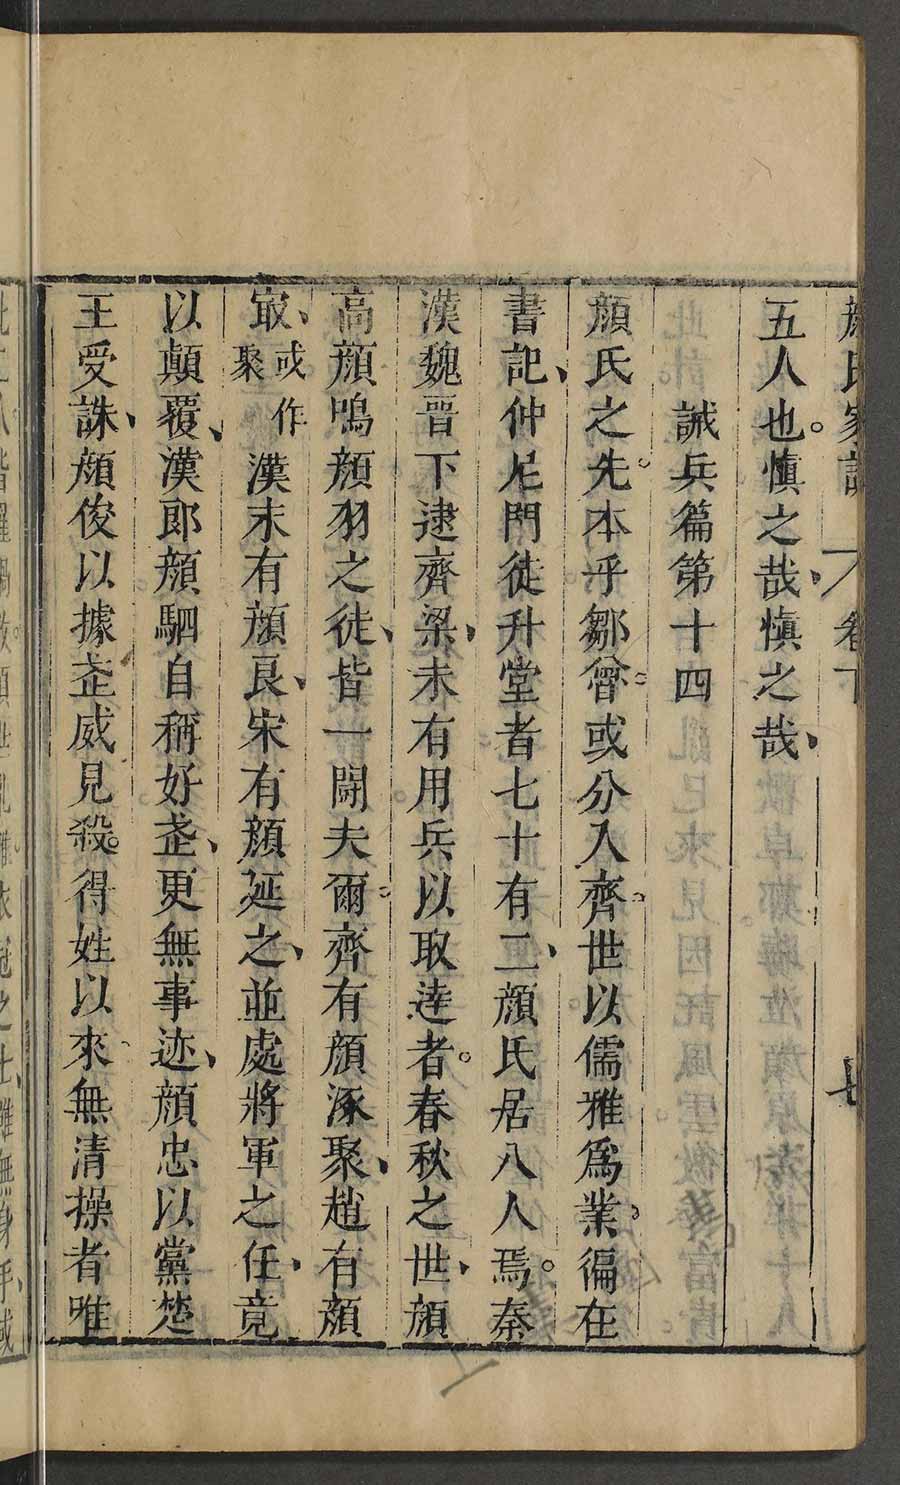 顔氏家訓 卷下 七
五人也。慎之哉、慎之哉、
誡兵篇第十四
顔氏之先。本乎鄒魯。或分入齊。世以儒雅爲業。徧在
書記、仲尼門徒升堂者七十有二、顔氏居八人焉。秦
漢魏晉下逮齊梁、未有用兵以取達者。春秋之世、顔
高顔鳴顔羽之徒、皆一鬭夫爾。齊有顔涿聚、趙有顔
冣、或作聚漢末有顔良、宋有顔延之、並處將軍之任、竟
以顛覆、漢郎顔駟自稱好武、更無事迹、顔忠以黨楚
王受誅、顔俊以據武威見殺。得姓以來無清操者唯